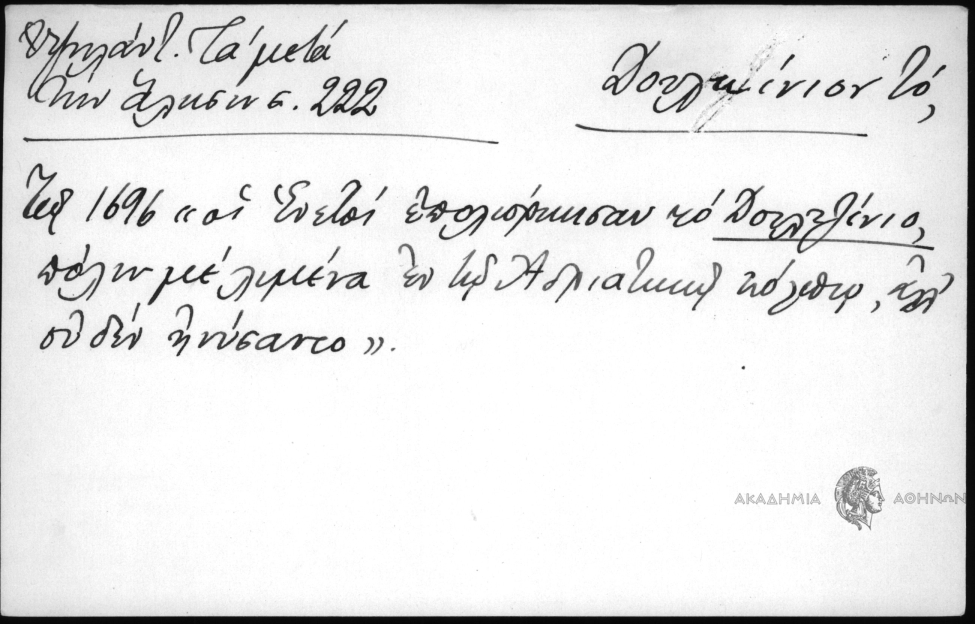 Ὑψηλάντ. Τά μετά
τήν Ἅλωσιν σ. 222
Δουλκίνιον τό,
Τῷ 1696 «οἱ Ἑνετοί ἐπολιόρκησαν τό Δουλτζίνιο,
πόλιν μέ λιμένα ἐν τῷ Ἀδριατικῷ κόλπῳ, ἀλλ'
οὐδέν ἠνύσαντο».
ΑΚΑΔΗΜΙΑ ΑΘΗΝΩΝ